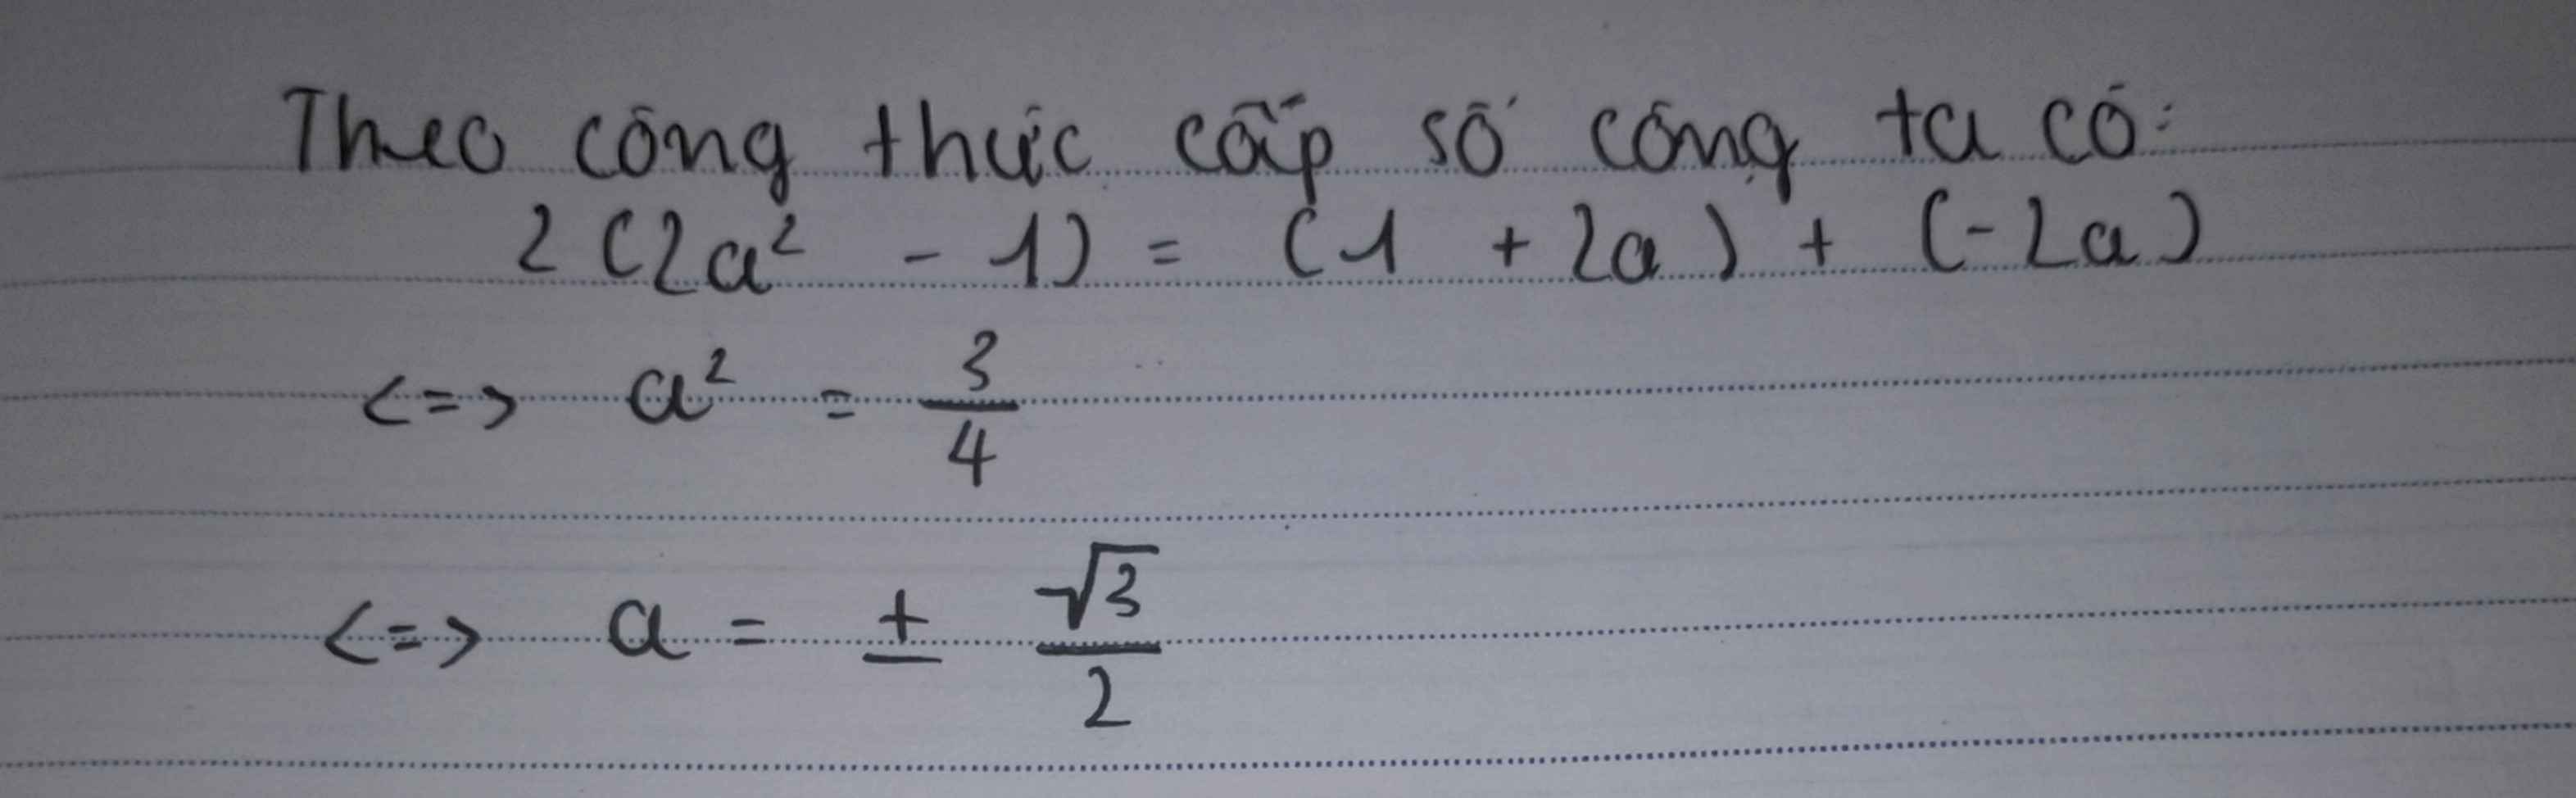 Theo công thức cấp số cộng ta có:
2(2a² - 1) = (1 + 2a) + (-2a)
<=> a² = 3/4
<=> a = ± √3/2